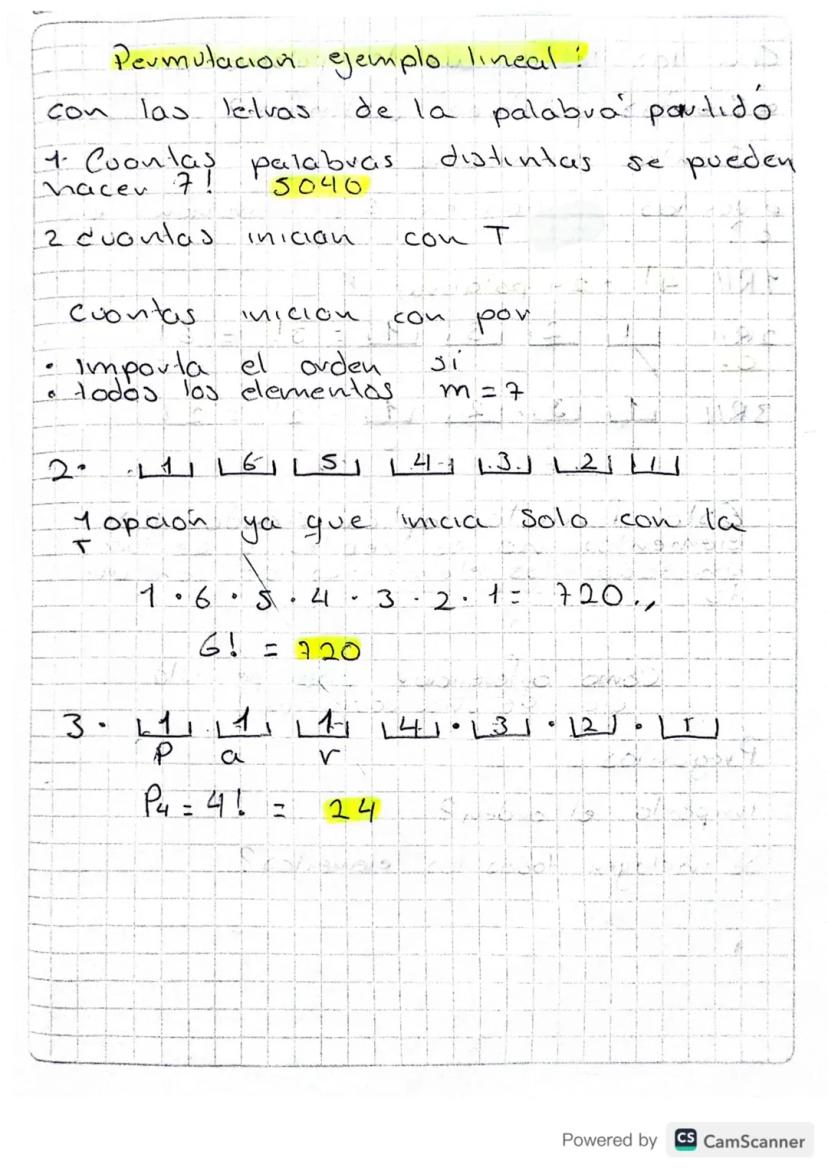 Permutación ejemplo lineal:
con las letras de la palabra "partido"
1. Cuantas palabras distintas se pueden
hacer 7! 5040
2 cuantas inician con T
Cuantas inician con par
• Importa el orden si
• todos los elementos m = 7
2. 1 6 5 4 3 2 1
1 opción ya que inicia solo con la
T
1 • 6 • 5 • 4 • 3 • 2 • 1 = 720
6! = 720
3. 1 1 1 4 • 3 • 2 • 1
P a r
P4 = 4! = 24
Powered by CS CamScanner